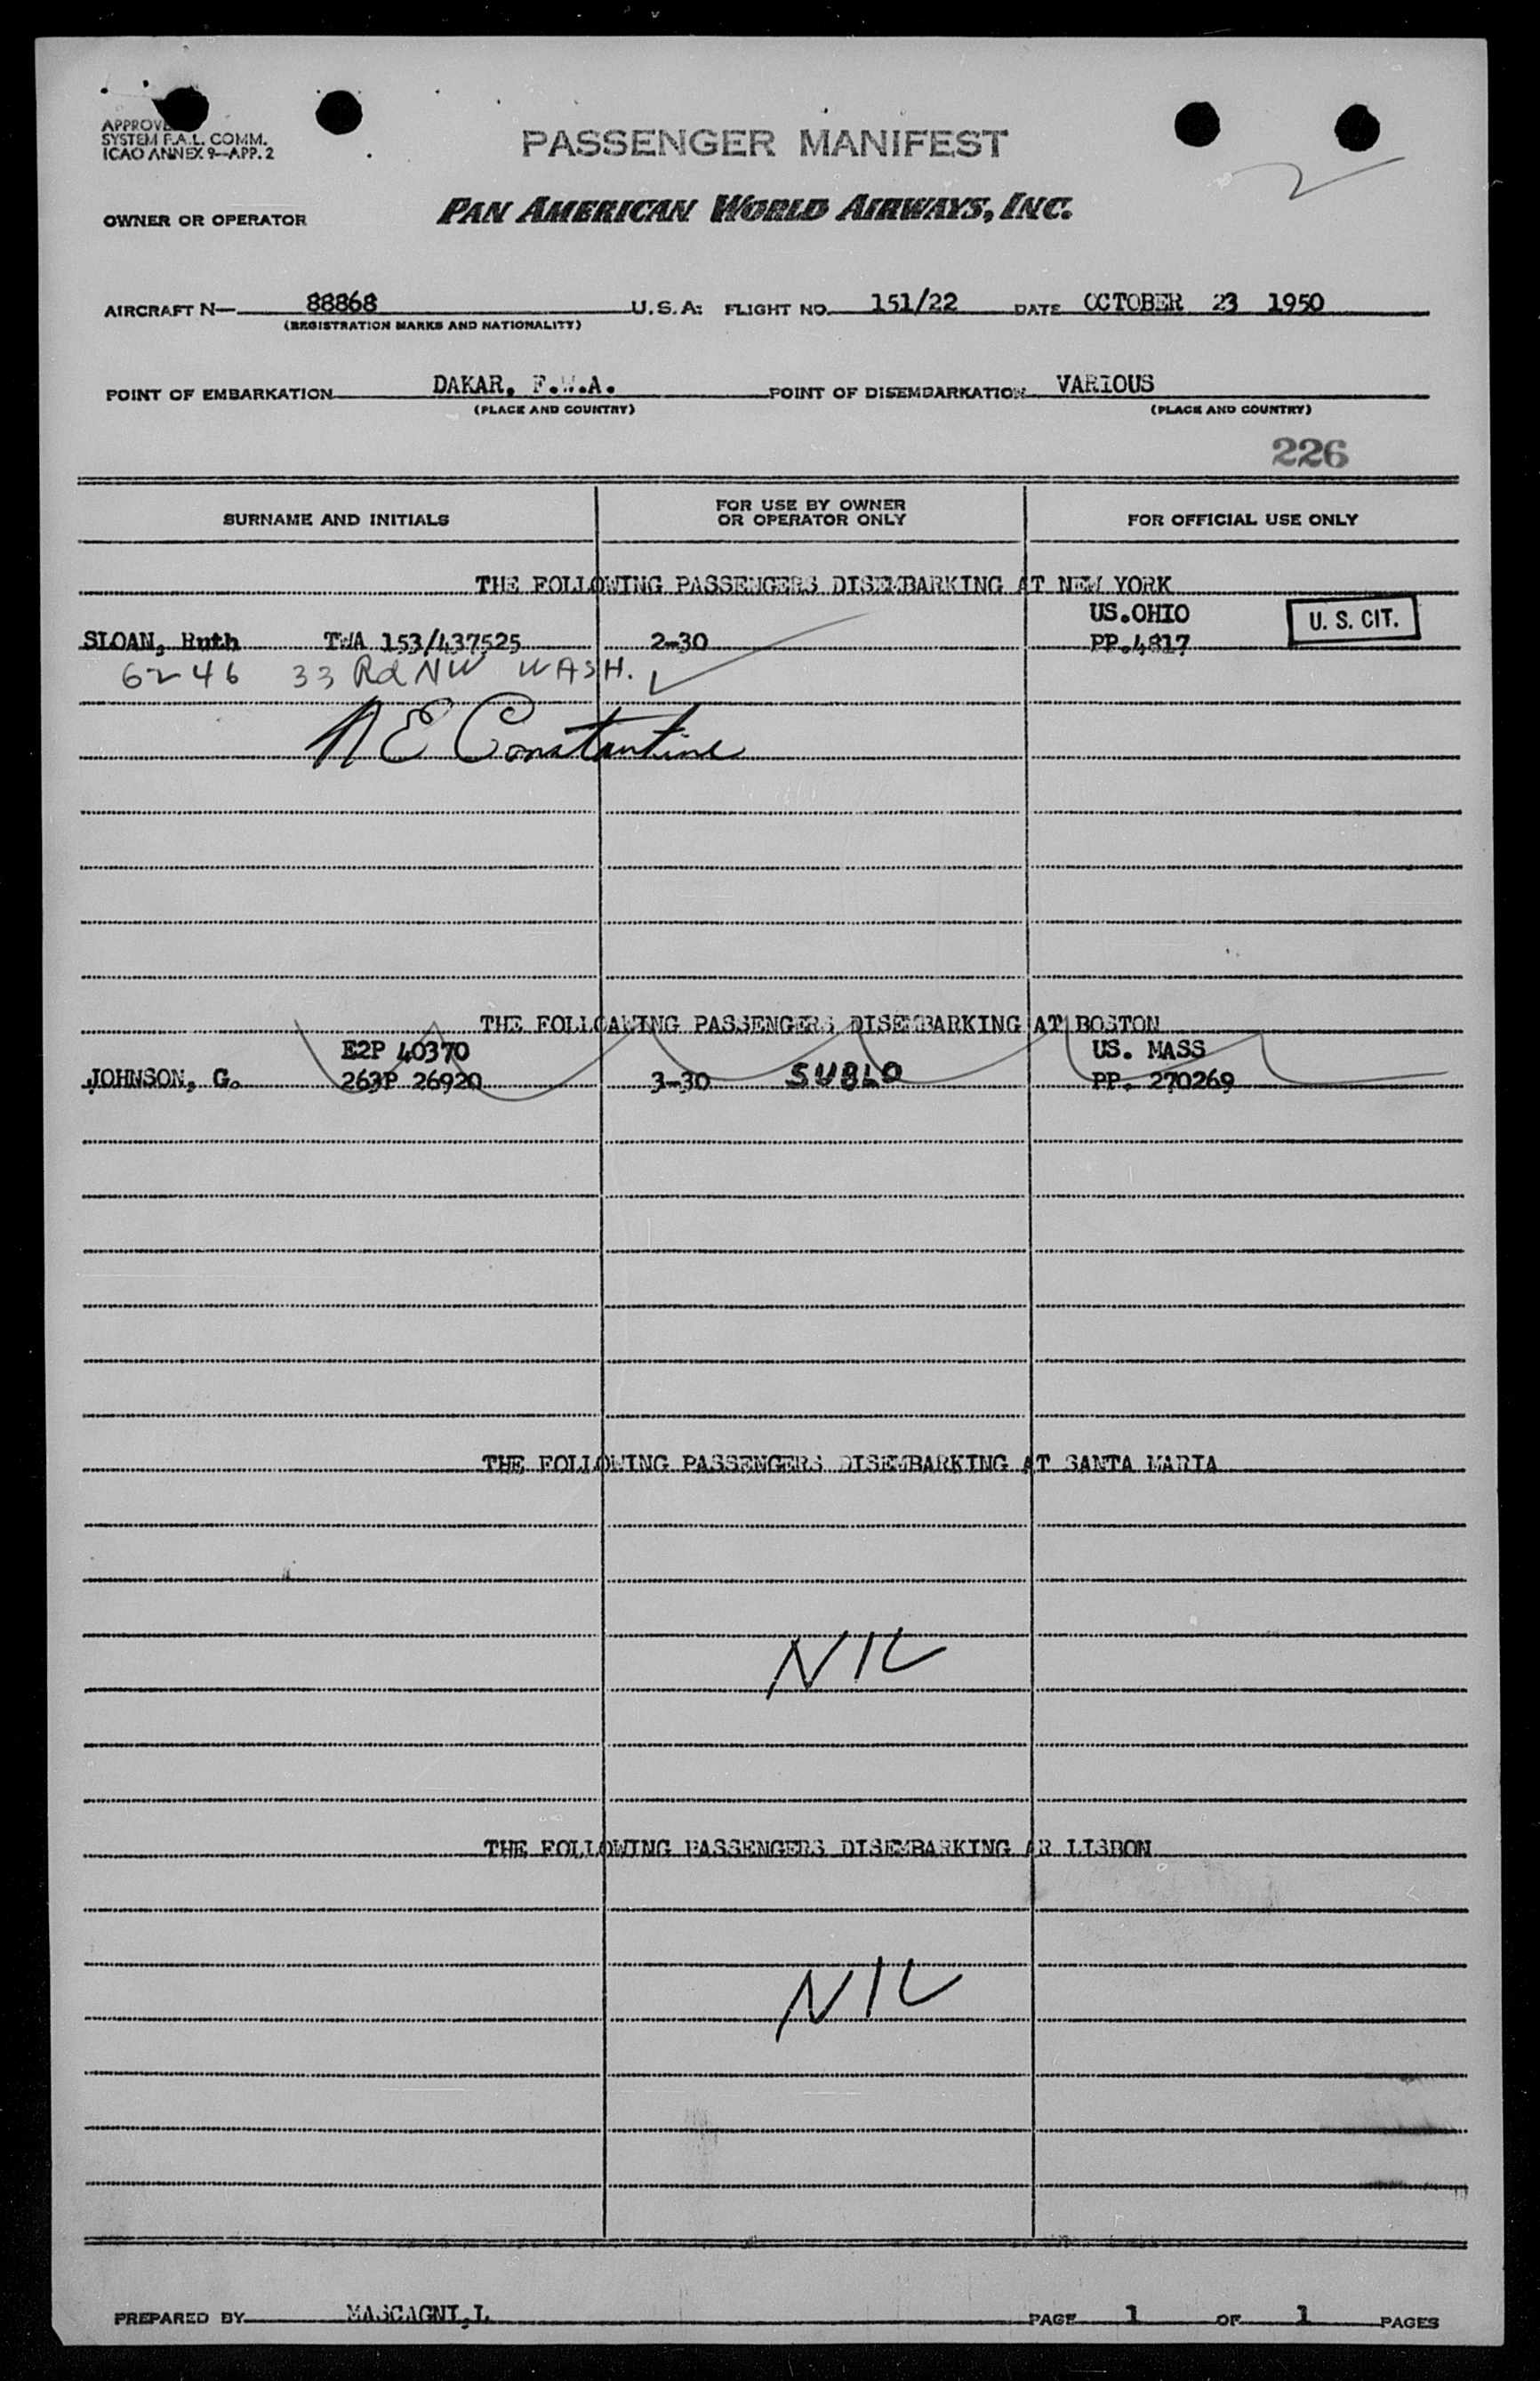 APPROVE
SYSTEM F.A.L. COMM.
ICAO ANNEX 9—APP. 2
PASSENGER MANIFEST
2
OWNER OR OPERATOR PAN AMERICAN WORLD AIRWAYS, INC.
AIRCRAFT N— 88868 U.S.A: FLIGHT NO. 151/22 DATE OCTOBER 23 1950
(REGISTRATION MARKS AND NATIONALITY)
POINT OF EMBARKATION DAKAR, F.W.A. POINT OF DISEMBARKATION VARIOUS
(PLACE AND COUNTRY) (PLACE AND COUNTRY)
226
SURNAME AND INITIALS FOR USE BY OWNER OR OPERATOR ONLY FOR OFFICIAL USE ONLY
THE FOLLOWING PASSENGERS DISEMBARKING AT NEW YORK
US.OHIO U. S. CIT.
SLOAN, Ruth TWA 153/437525 2-30 PP.4817
62 46 33 Rd NW WASH.
N E Constantine
THE FOLLOAWING PASSENGERS DISEMBARKING AT BOSTON
E2P 40370 US. MASS
JOHNSON, G. 263P 26920 3-30 SUBLO PP. 270269
THE FOLLOWING PASSENGERS DISEMBARKING AT SANTA MARIA
NIL
THE FOLLOWING PASSENGERS DISEMBARKING AR LISBON
NIL
PREPARED BY MASCAGNI,L PAGE 1 OF 1 PAGES